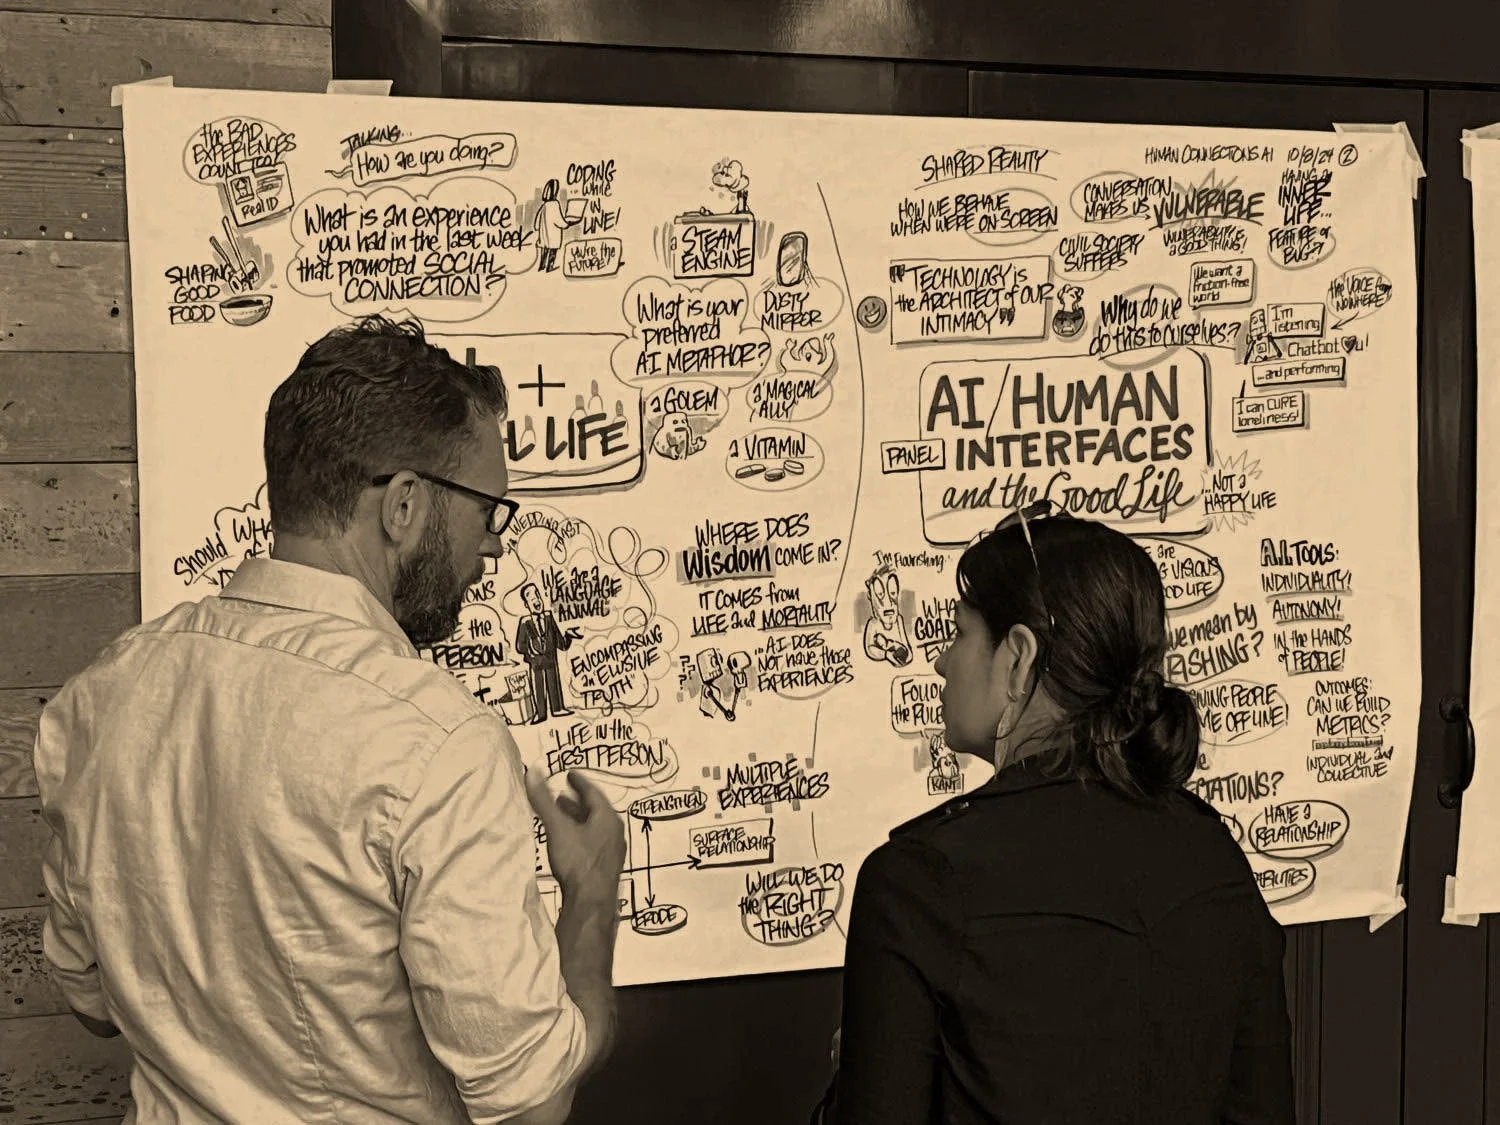 the BAD
EXPERIENCES
COUNT TOO
Real ID
SHAPING
GOOD
FOOD
TALKING...
How are you doing?
What is an experience
you had in the last week
that promoted SOCIAL
CONNECTION?
CODING
while
IN
LINE!
You're the
FUTURE!
a STEAM
ENGINE
What is your
preferred
AI METAPHOR?
DUSTY
MIRROR
a GOLEM
a "MAGICAL
ALLY"
a VITAMIN
+
L LIFE
Should
WE are a
"LANGUAGE
ANIMAL"
the
PERSON
ENCOMPASSING
an "ELUSIVE
TRUTH"
"LIFE in the
FIRST PERSON"
WHERE DOES
Wisdom COME IN?
IT COMES from
LIFE and MORTALITY
...A.I. DOES
NOT have those
EXPERIENCES
???
MULTIPLE
EXPERIENCES
STRENGTHEN
SURFACE
RELATIONSHIP
ERODE
WILL WE DO
the RIGHT
THING?
HUMAN CONNECTIONS AI 10/8/24 2
SHARED REALITY
HOW WE BEHAVE
WHEN WE'RE ON SCREEN
CONVERSATION
MAKES US VULNERABLE
VULNERABILITY is
a GOOD THING!
HAVING a
INNER
LIFE...
FEATURE or
BUG?
CIVIL SOCIETY
SUFFERS
"TECHNOLOGY is
the ARCHITECT of OUR
INTIMACY"
We want a
friction-free
world
Why do we
do this to ourselves?
the VOICE from
NOWHERE
I'm
listening
Chatbot ♥ U!
...and performing
I can CURE
loneliness!
AI/HUMAN
PANEL INTERFACES
and the Good Life
...NOT a
HAPPY LIFE
I'm flourishing
are
VISIONS
LIFE
A.I. TOOLS:
INDIVIDUALITY!
AUTONOMY!
IN the HANDS
of PEOPLE!
mean by
RISHING?
the RULE
KANT
PEOPLE
ME OFFLINE!
OUTCOMES:
CAN WE BUILD
METRICS?
INDIVIDUAL and
COLLECTIVE
CTATIONS?
HAVE a
RELATIONSHIP